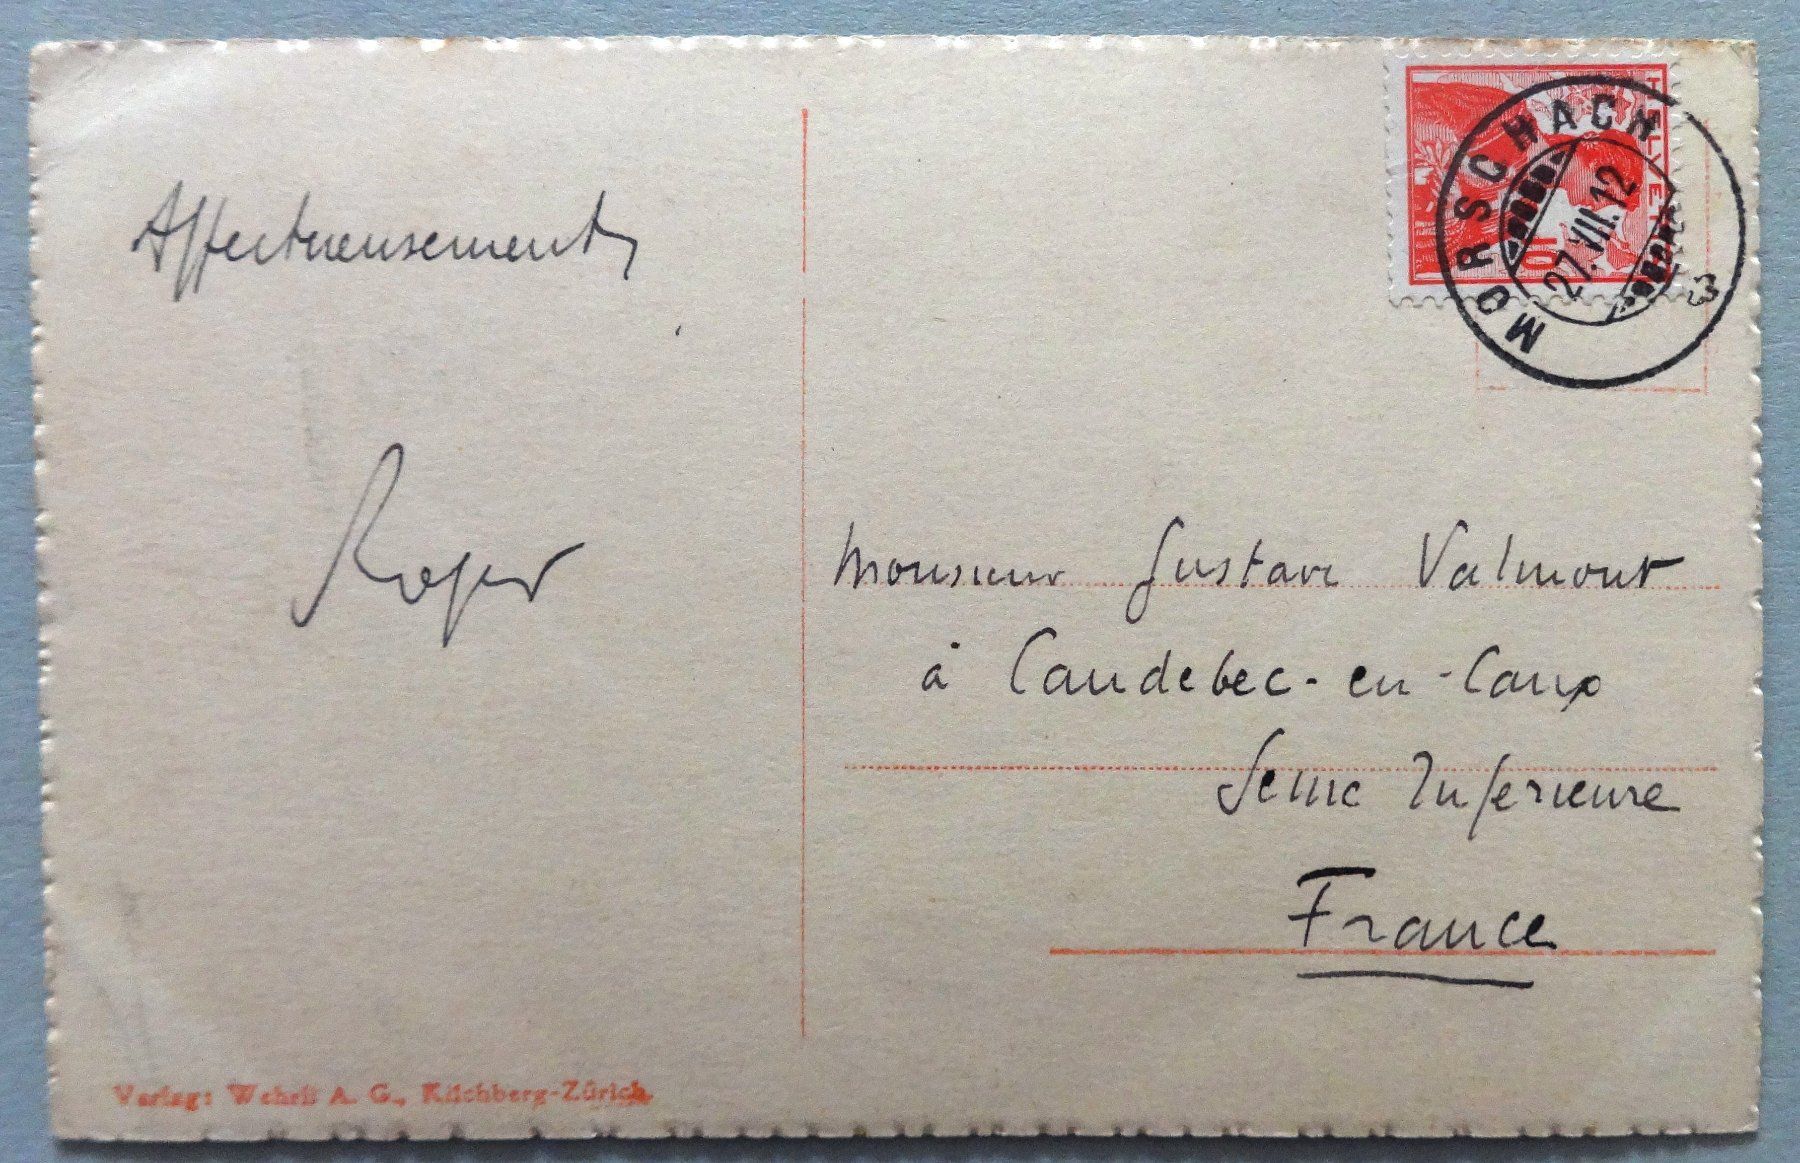 HELVETIA
10
MORSCHACH
27.VIII.12
Affectueusement,
Roger
Monsieur Gustave Valmont
à Caudebec-en-Caux
Seine Inferieure
France
Verlag: Wehrli A. G., Kilchberg-Zürich.